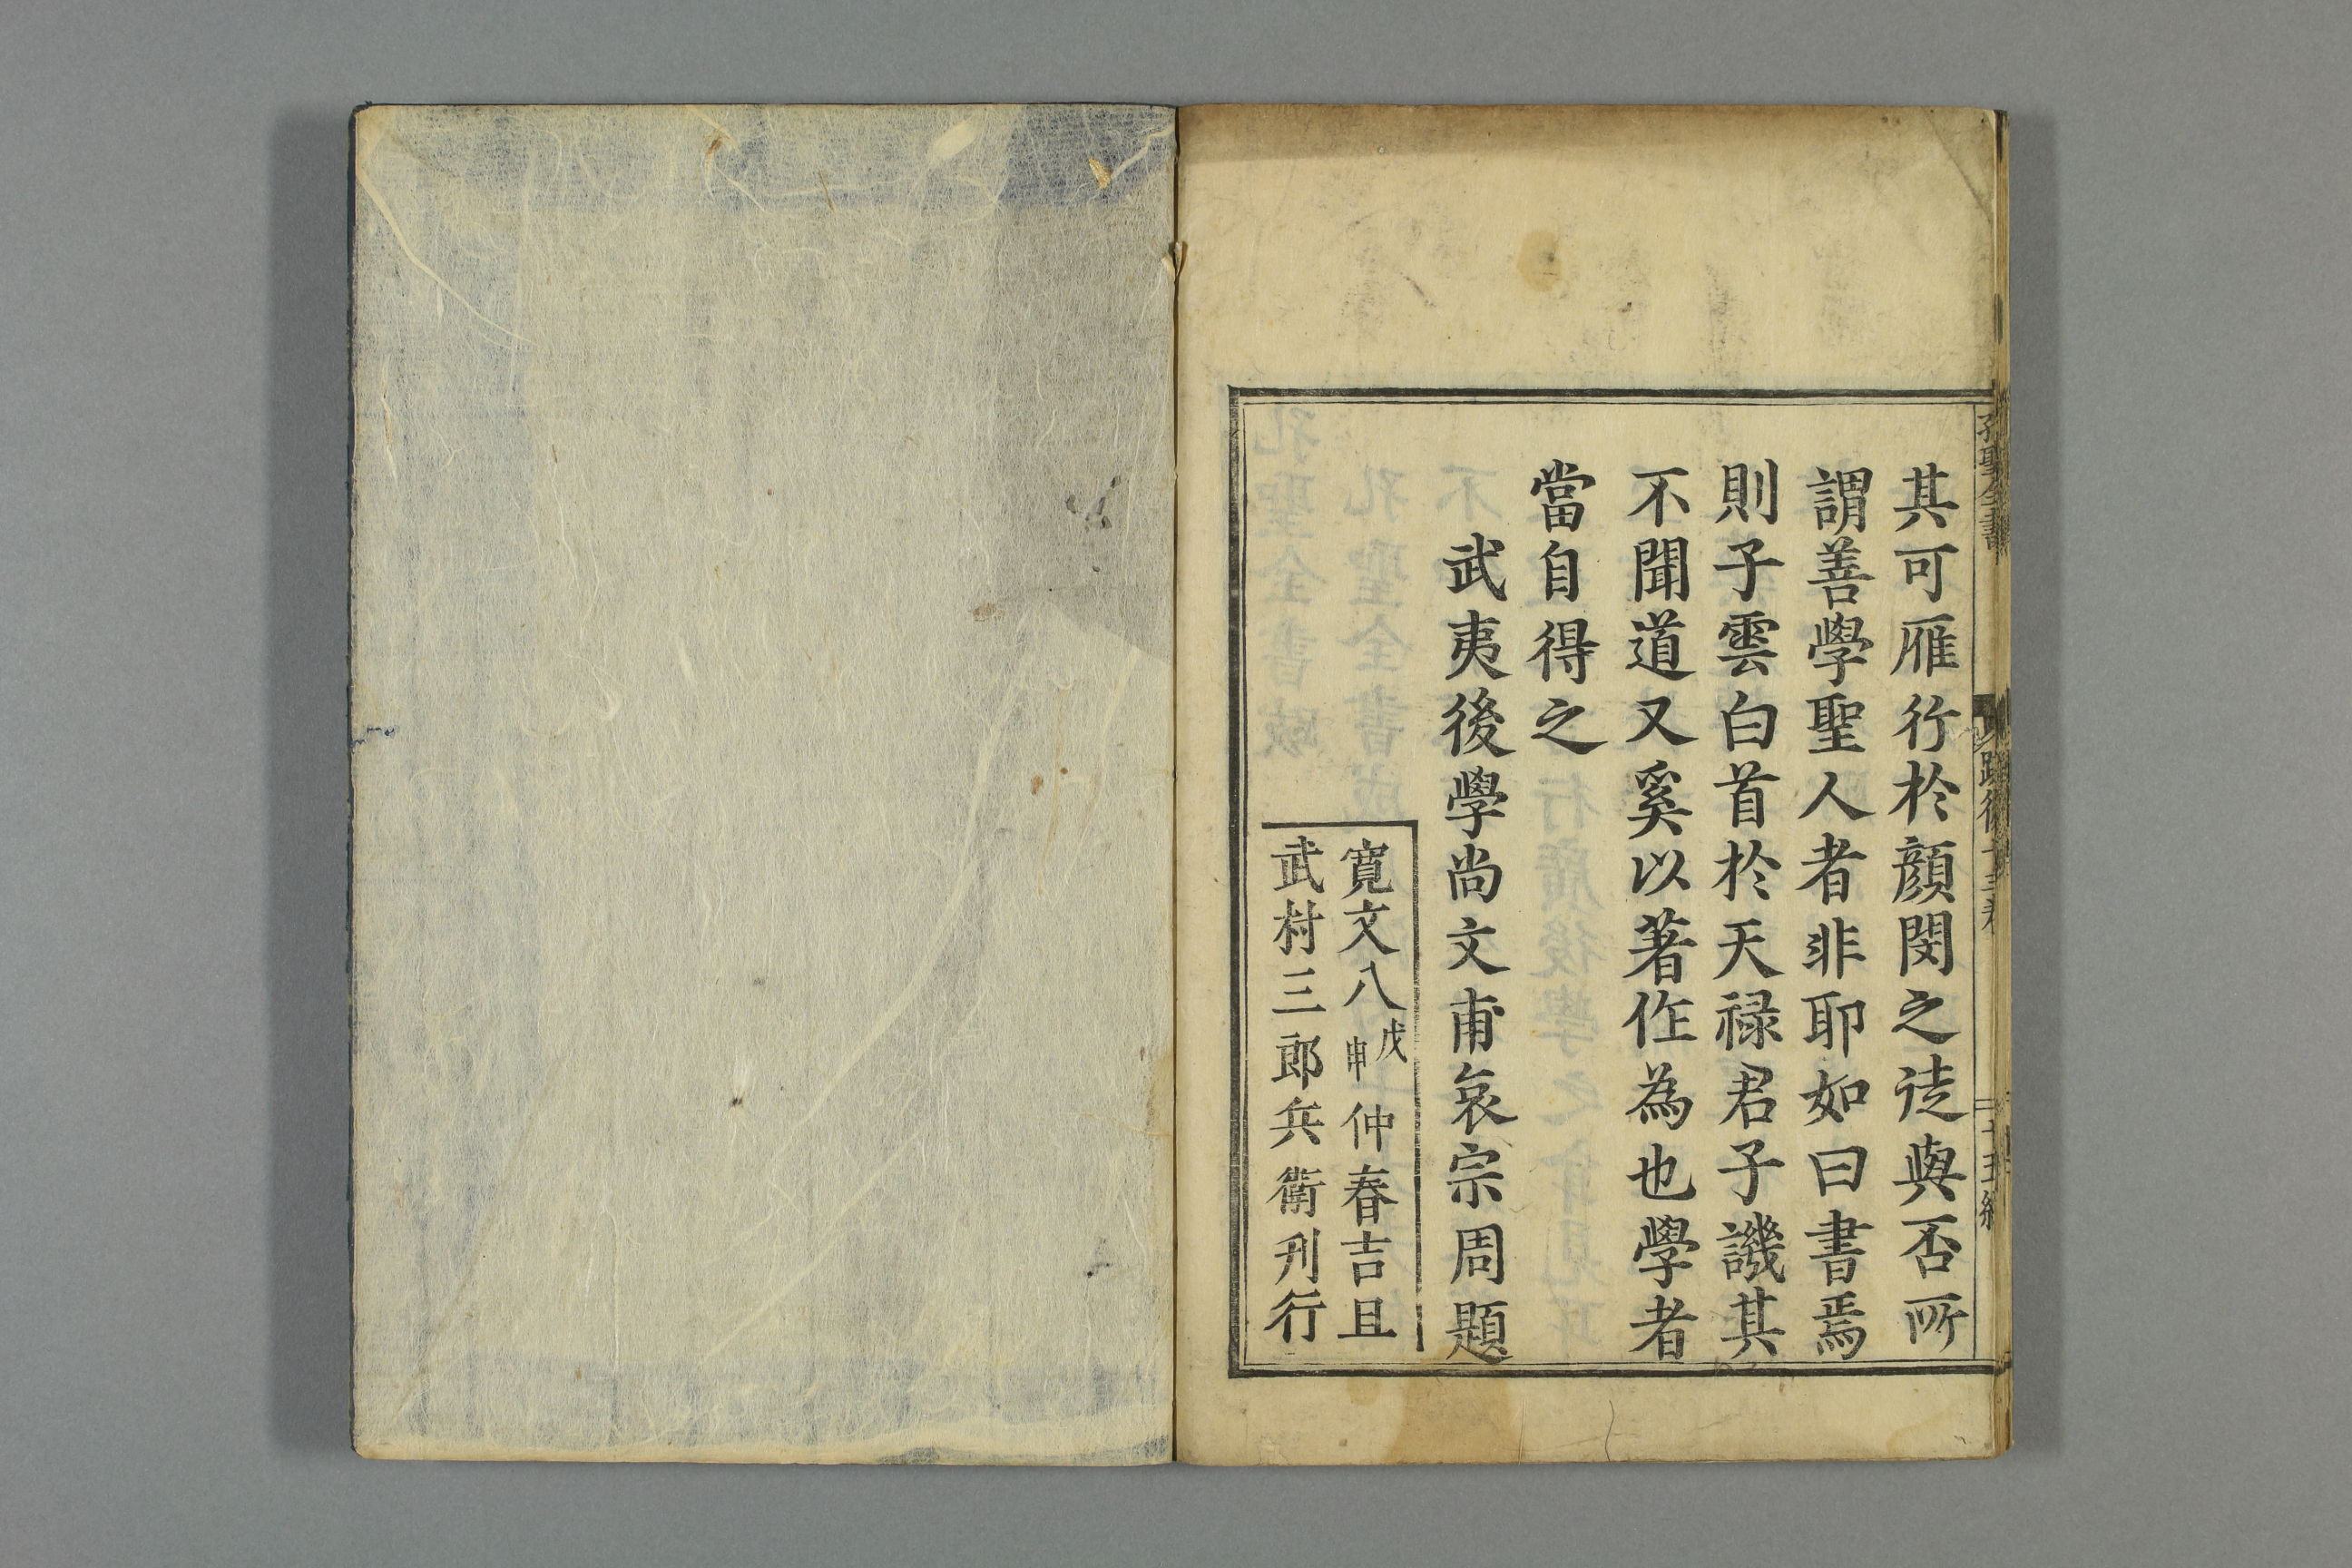 其可雁行於顔閔之徒與否所
謂善學聖人者非耶如曰書焉
則子雲白首於天禄君子譏其
不聞道又奚以著作為也學者
當自得之
武夷後學尚文甫袞宗周題
寛文八戊申仲春吉且
武村三郎兵衞刋行